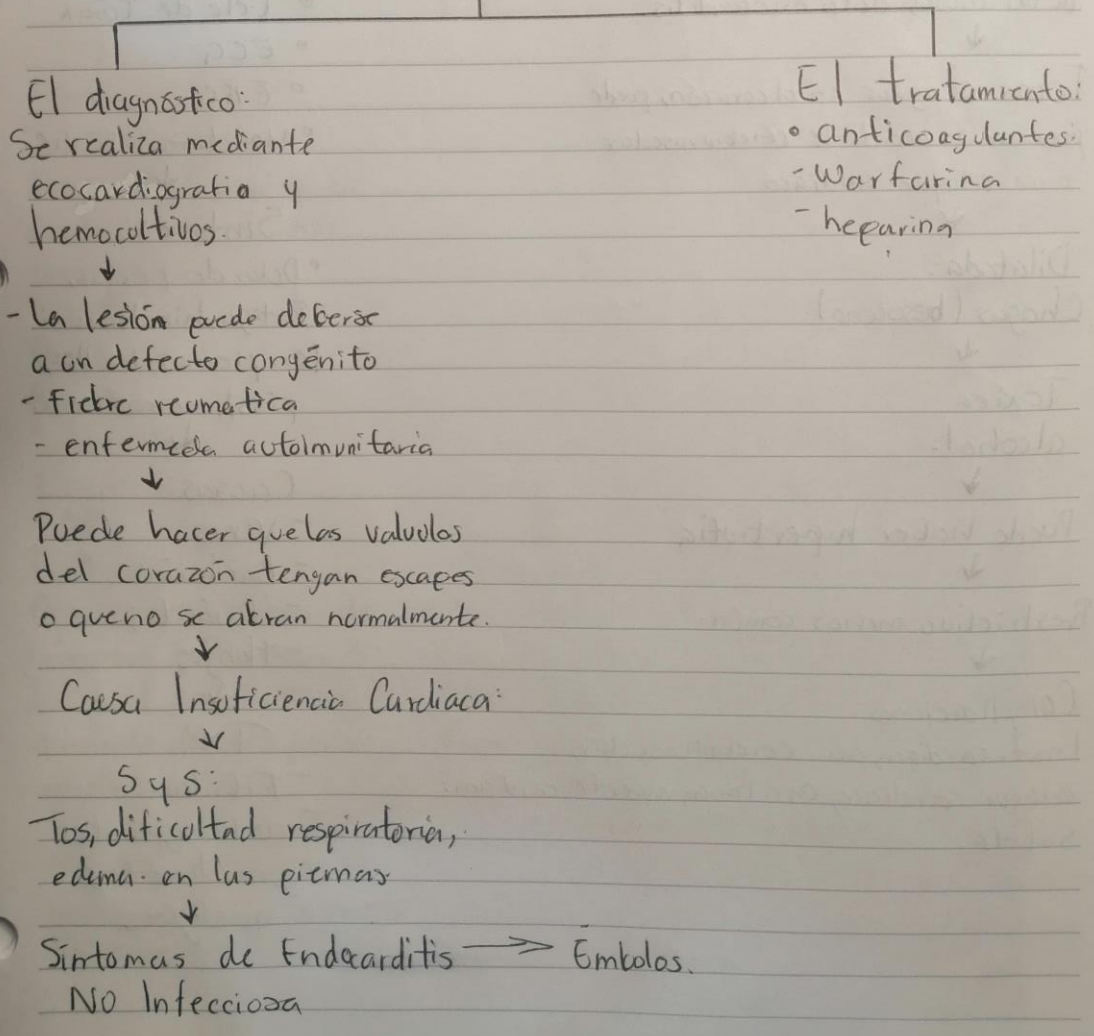 El diagnóstico:
Se realiza mediante
ecocardiografia y
hemocultivos.
↓
- La lesión puede deberse
a un defecto congénito
- fiebre reumatica
- enfermeda autoimunitaria
↓
Puede hacer que las valvulas
del corazón tengan escapes
o que no se abran normalmente.
↓
Causa Insuficiencia Cardiaca:
↓
S y S:
Tos, dificultad respiratoria,
edema en las piernas
↓
Síntomas de Endocarditis → Émbolos.
No Infecciosa
El tratamiento:
• anticoagulantes.
- Warfarina
- heparina